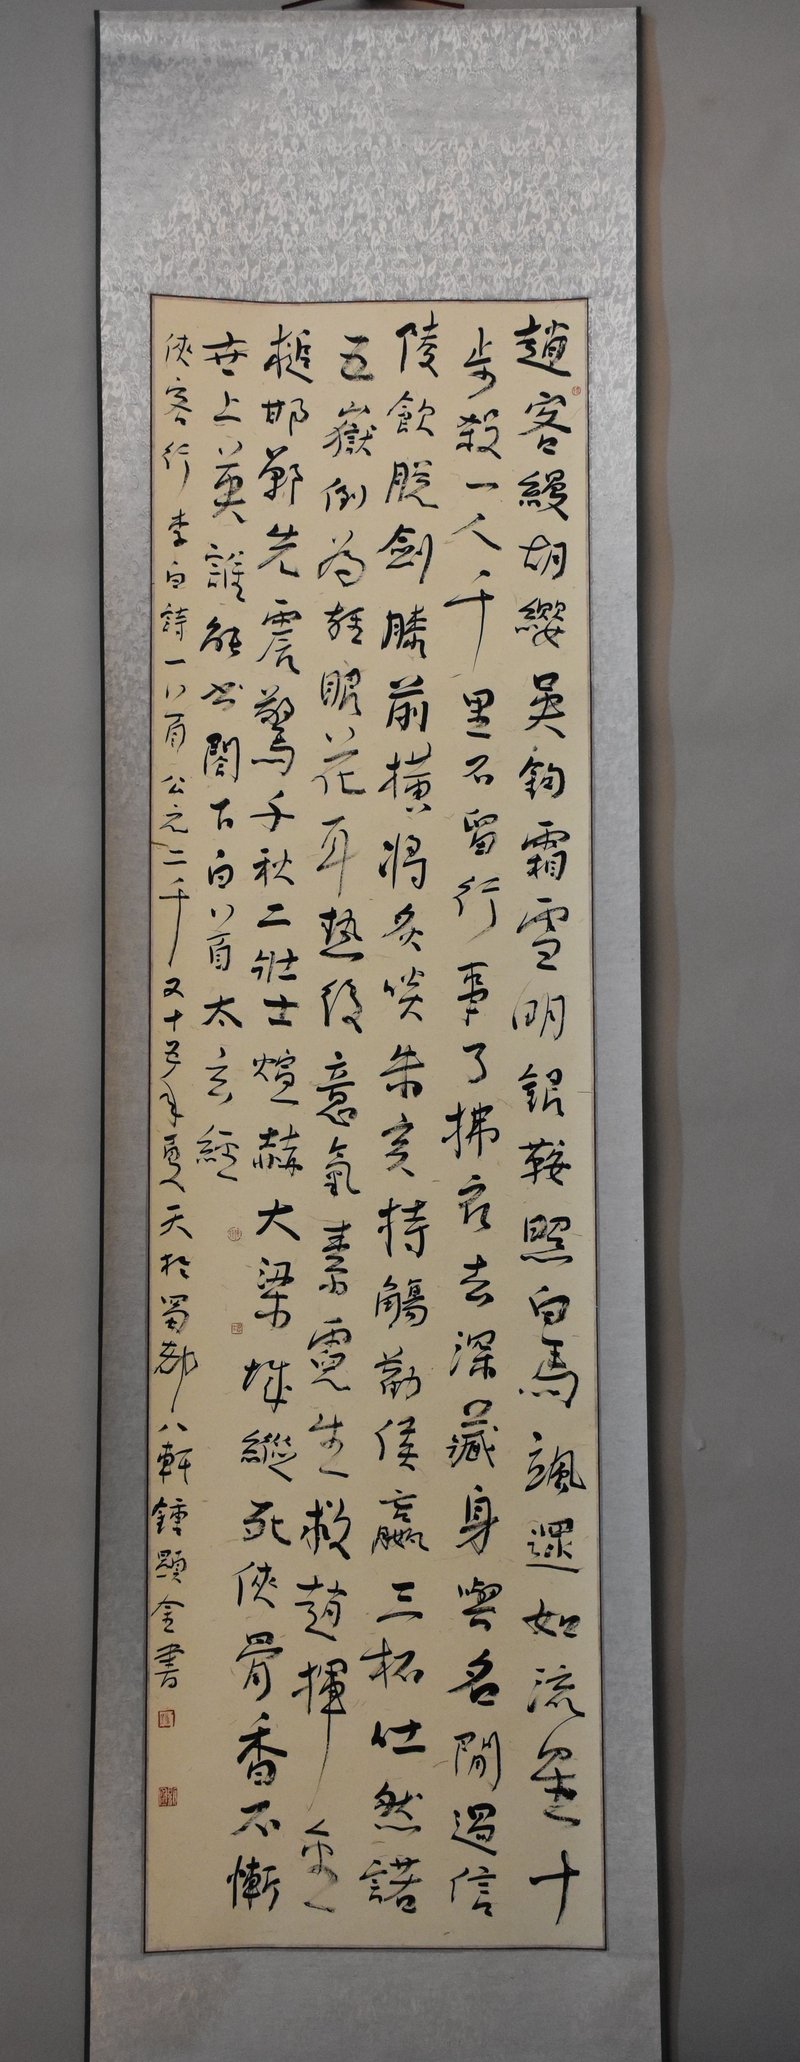 趙客縵胡纓吳鉤霜雪明銀鞍照白馬颯遝如流星十
步殺一人千里不留行事了拂衣去深藏身與名閒過信
陵飲脫劍膝前橫將炙啖朱亥持觴勸侯嬴三杯吐然諾
五嶽倒為輕眼花耳熱後意氣素霓生救趙揮金
槌邯鄲先震驚千秋二壯士煊赫大梁城縱死俠骨香不慚
世上英誰能書閣下白首太玄經
俠客行李白詩一首公元二千又十五年夏天於蜀都八軒鍾顯金書